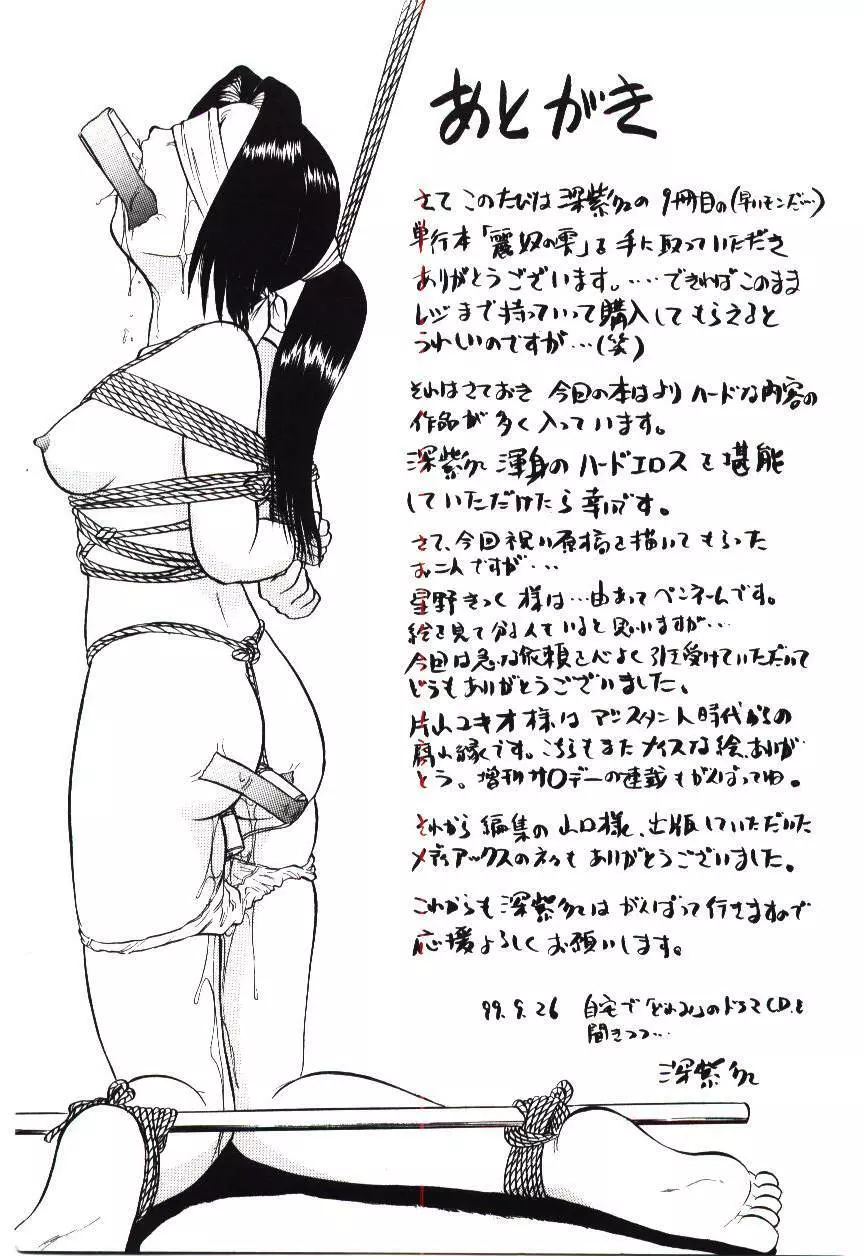 あとがき
さて このたびは 深紫幻の 9冊目の(早いモンだ…)
単行本「麗奴の雫」を 手に取っていただき
ありがとうございます。……できればこのまま
レジまで持っていって購入してもらえると
うれしいのですが…(笑)
それはさておき 今回の本はより ハードな内容の
作品が 多く入っています。
渾身の ハードエロスを 堪能
していただけたら 幸いです。
さて、今回祝い原稿を描いてもらった
お二人ですが…
星野きっく様は…由あってペンネームです。
絵を見て分る人もいると思いますが…
今回は急な依頼を心よく引き受けていただいて
どうもありがとうございました。
片山ユキオ様は アシスタント時代からの
腐れ縁です。こちらもまたナイスな絵、ありが
とう。増刊サ〇デーの連載もがんばってね。
それから 編集の 山口様、出版していただいた
メディアックスの もありがとうございました。
これからも 深紫 は がんばって行きますので
応援よろしくお願いします。
99.9.26 自宅で「どれみ」のドラマCDを
聞きつつ…
深紫